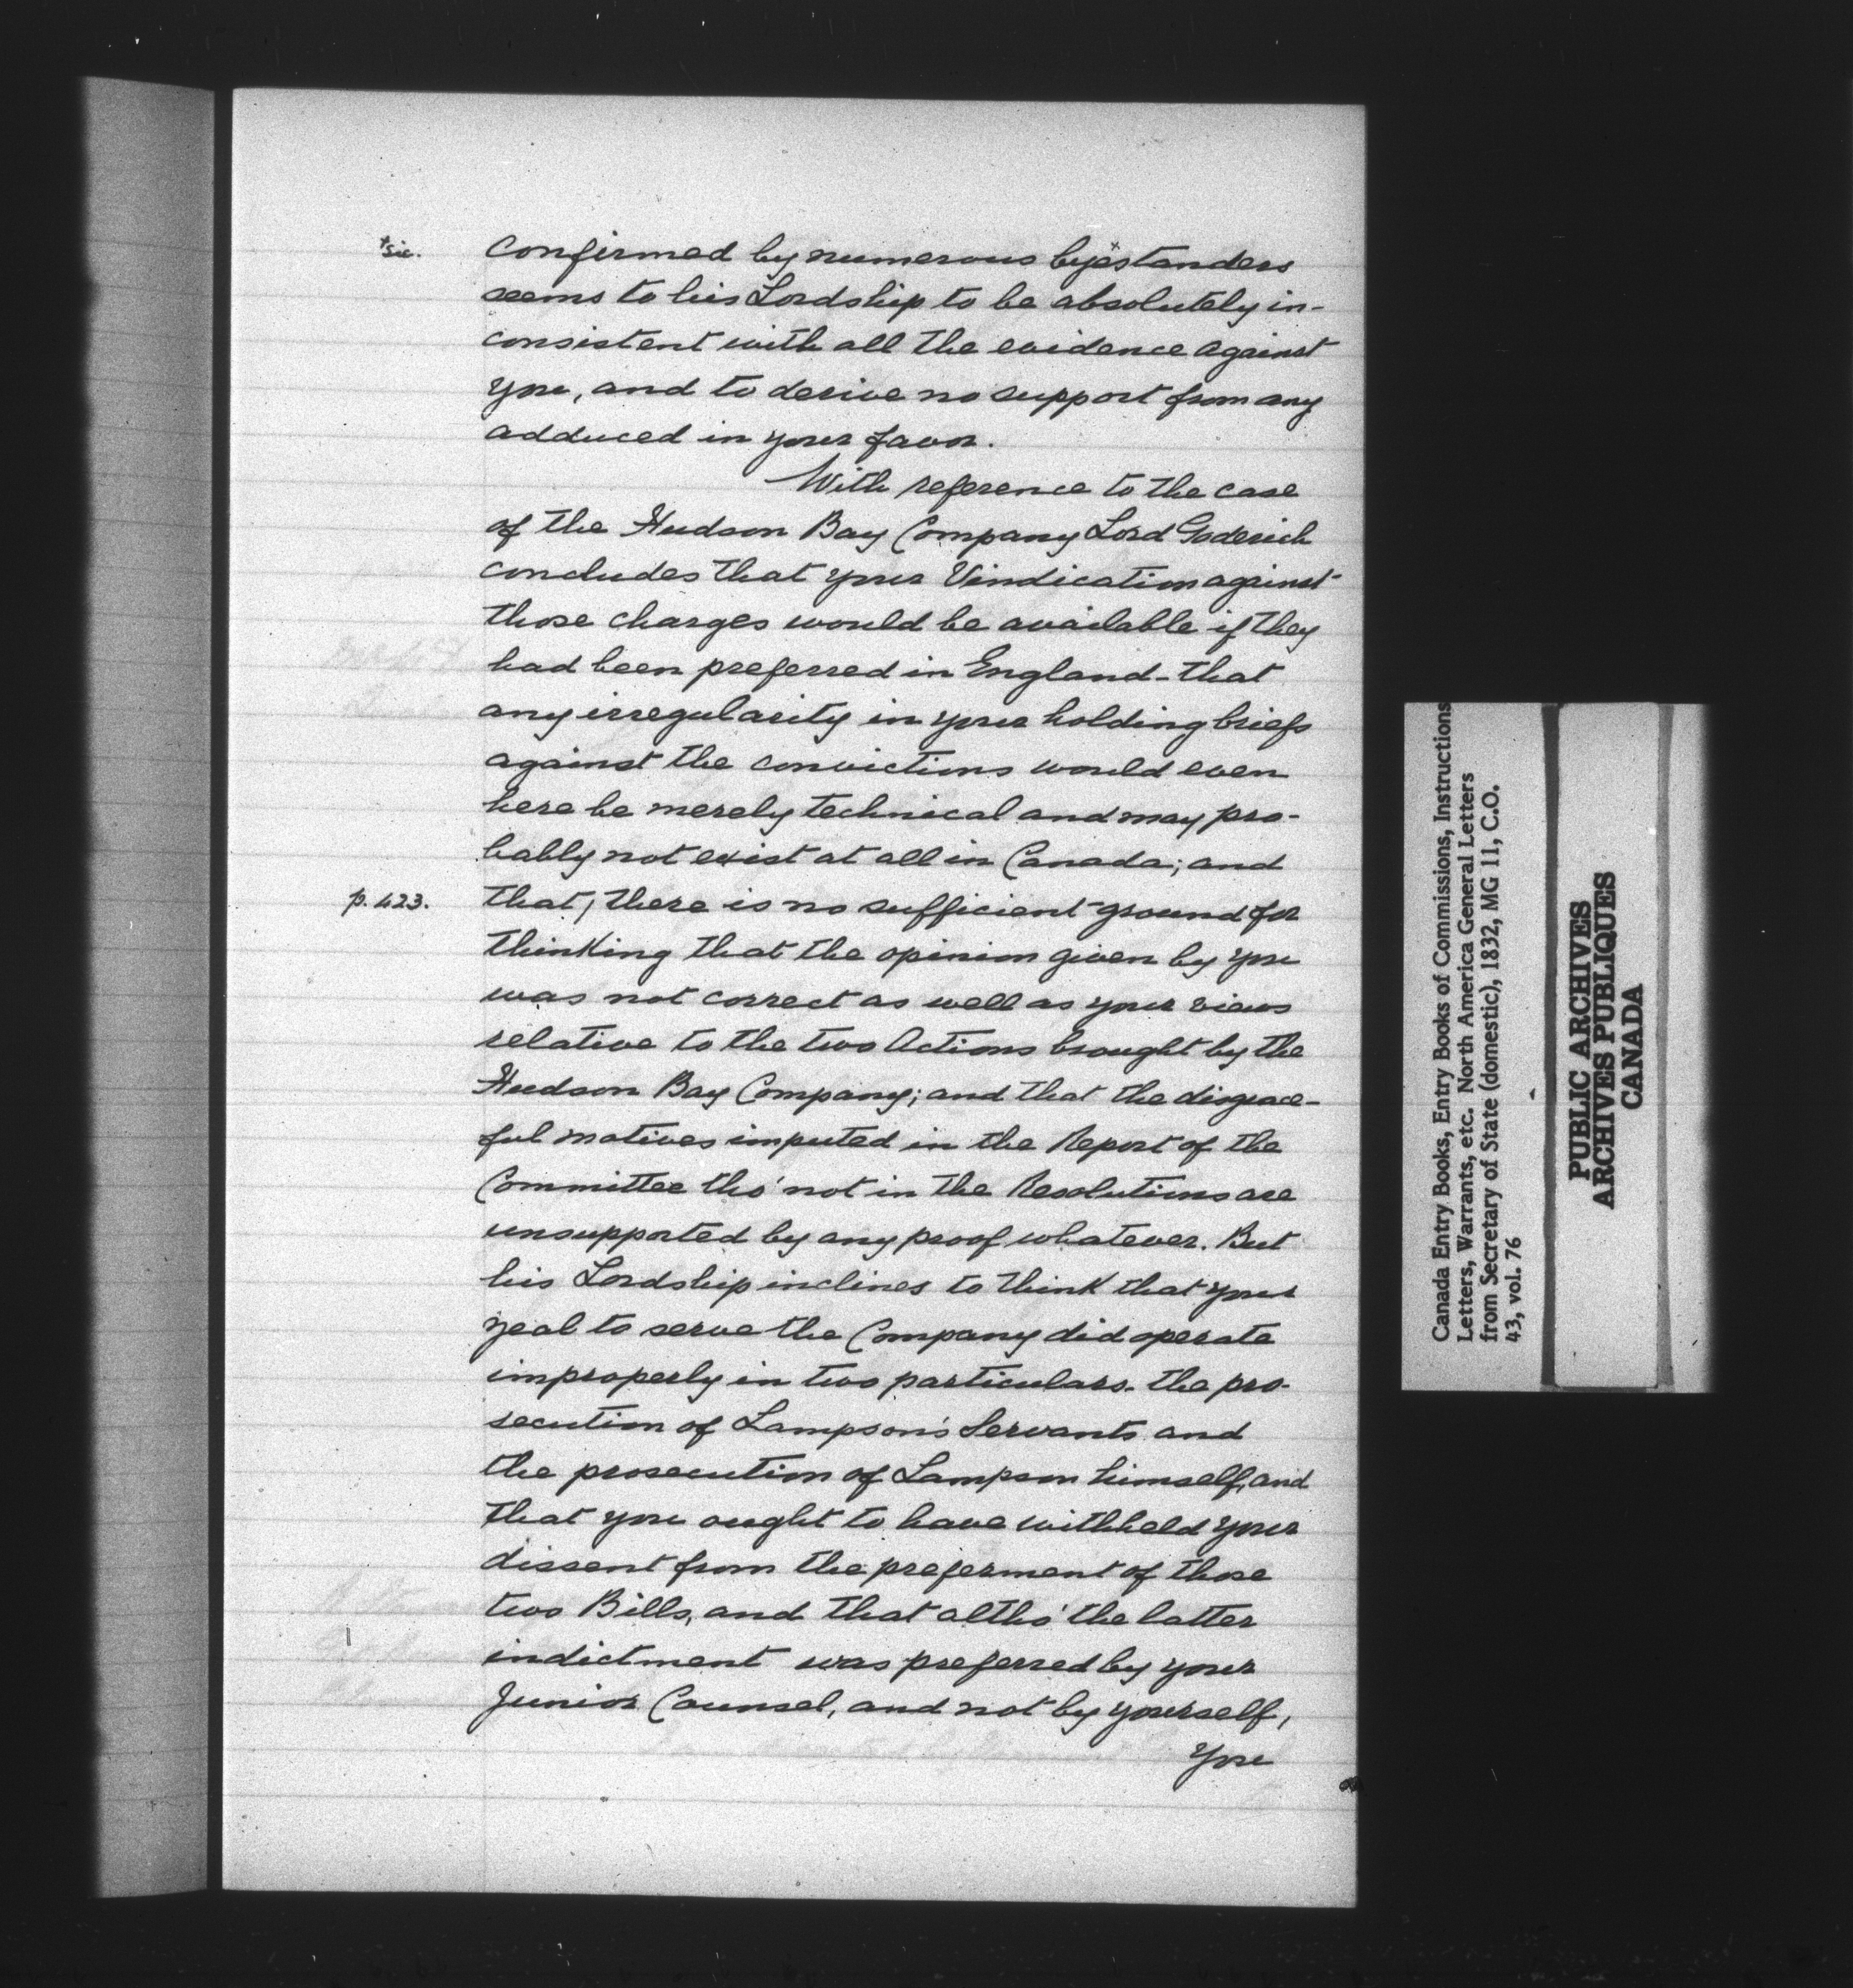 +sic.
confirmed by numerous bye+standers
seems to his Lordship to be absolutely in-
consistent with all the evidence against
you, and to derive no support from any
adduced in your favor.
With reference to the case
of the Hudson Bay Company Lord Goderich
concludes that your Vindication against
those charges would be available if they
had been preferred in England - that
any irregularity in your holding briefs
against the convictions would even
here be merely technical and may pro-
bably not exist at all in Canada; and
p. 423.
that, there is no sufficient ground for
thinking that the opinion given by you
was not correct as well as your views
relative to the two Actions brought by the
Hudson Bay Company; and that the disgrace-
ful motives imputed in the Report of the
Committee tho' not in the Resolutions are
unsupported by any proof whatever. But
his Lordship inclines to think that your
zeal to serve the Company did operate
improperly in two particulars - the pro-
secution of Lampson's Servants and
the prosecution of Lampson himself, and
that you ought to have withheld your
dissent from the preferment of those
two Bills, and that altho' the latter
indictment was preferred by your
Junior Counsel, and not by yourself,
You
Canada Entry Books, Entry Books of Commissions, Instructions
Letters, Warrants, etc. North America General Letters
from Secretary of State (domestic), 1832, MG 11, C.O.
43, vol. 76
PUBLIC ARCHIVES
ARCHIVES PUBLIQUES
CANADA